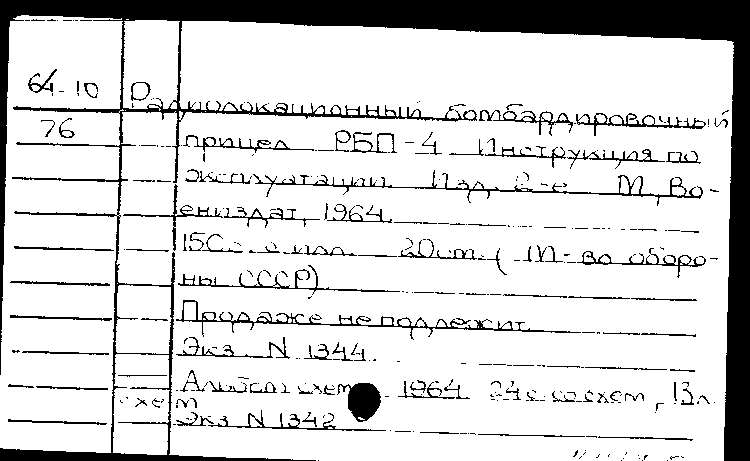 64-10 Радиолокационный бомбардировочный
76 прицел РБП-4. Инструкция по
эксплуатации. Изд. 2-е М., Во-
ениздат, 1964.
150с. с илл. 20см. (М-во оборо-
ны СССР)
Продаже не подлежит.
Экз. N 1344.
Альбом схем 1964 24с со схем, 13л.
схем
Экз N 1342